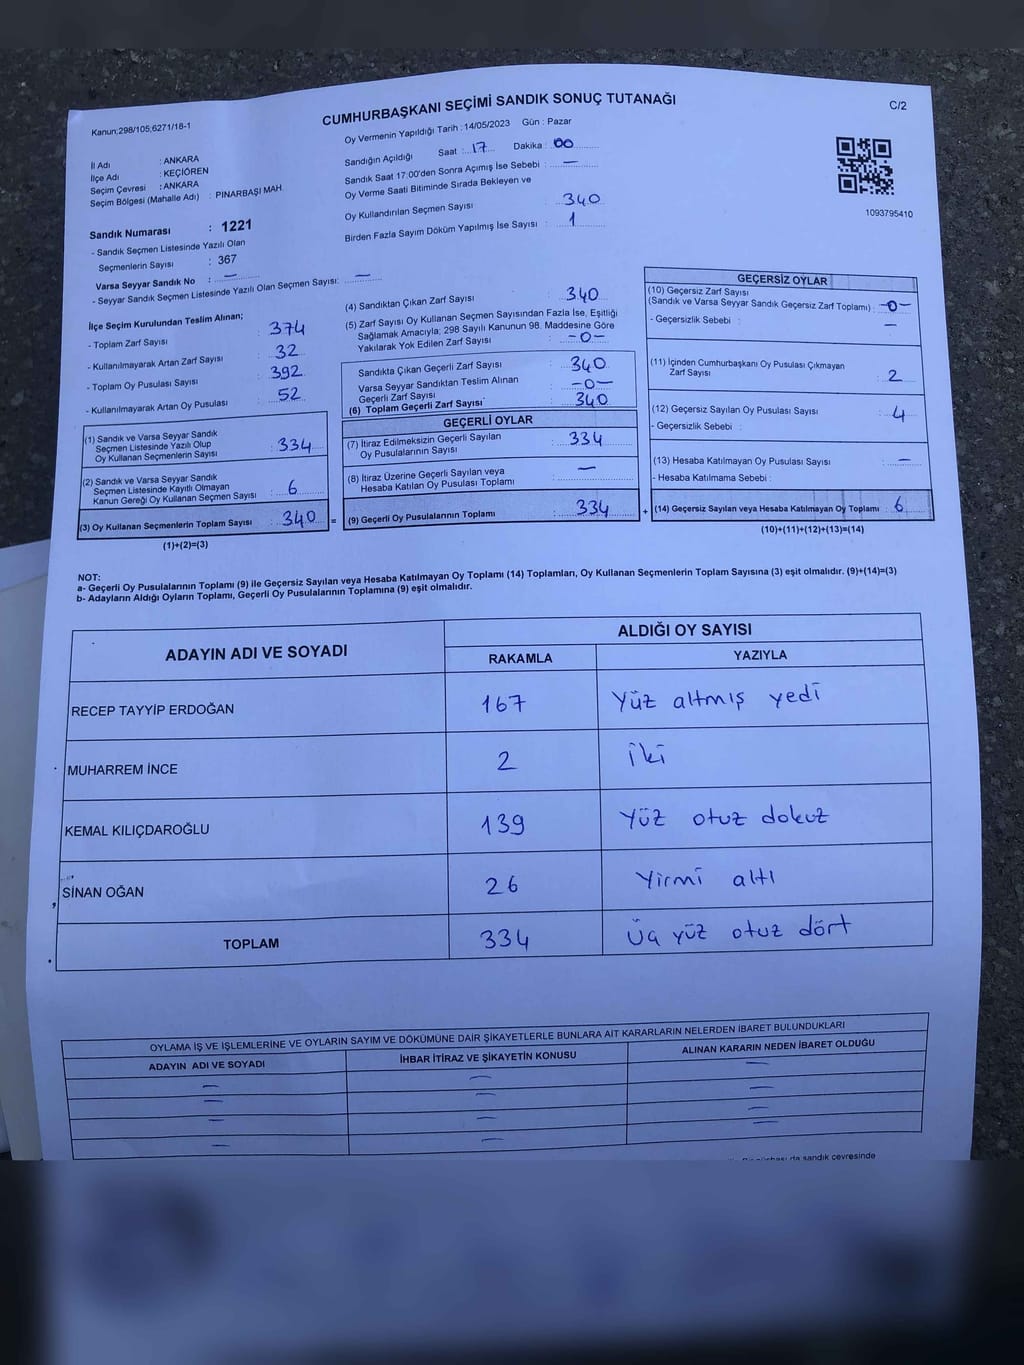 CUMHURBAŞKANI SEÇİMİ SANDIK SONUÇ TUTANAĞI
C/2
Kanun:298/105;6271/18-1
Oy Vermenin Yapıldığı Tarih : 14/05/2023 Gün : Pazar
İl Adı : ANKARA
İlçe Adı : KEÇİÖREN
Seçim Çevresi : ANKARA
Seçim Bölgesi (Mahalle Adı) : PINARBAŞI MAH.
Sandık Numarası : 1221
- Sandık Seçmen Listesinde Yazılı Olan
Seçmenlerin Sayısı : 367
Varsa Seyyar Sandık No : —
- Seyyar Sandık Seçmen Listesinde Yazılı Olan Seçmen Sayısı: —
Sandığın Açıldığı Saat : 17 Dakika : 00
Sandık Saat 17:00'den Sonra Açımış İse Sebebi : —
Oy Verme Saati Bitiminde Sırada Bekleyen ve
Oy Kullandırılan Seçmen Sayısı : 340
Birden Fazla Sayım Döküm Yapılmış İse Sayısı : 1
1093795410
İlçe Seçim Kurulundan Teslim Alınan;
- Toplam Zarf Sayısı : 374
- Kullanılmayarak Artan Zarf Sayısı : 32
- Toplam Oy Pusulası Sayısı : 392
- Kullanılmayarak Artan Oy Pusulası : 52
(1) Sandık ve Varsa Seyyar Sandık
Seçmen Listesinde Yazılı Olup
Oy Kullanan Seçmenlerin Sayısı : 334
(2) Sandık ve Varsa Seyyar Sandık
Seçmen Listesinde Kayıtlı Olmayan
Kanun Gereği Oy Kullanan Seçmen Sayısı : 6
(3) Oy Kullanan Seçmenlerin Toplam Sayısı : 340
(1)+(2)=(3)
=
(4) Sandıktan Çıkan Zarf Sayısı : 340
(5) Zarf Sayısı Oy Kullanan Seçmen Sayısından Fazla İse, Eşitliği
Sağlamak Amacıyla; 298 Sayılı Kanunun 98. Maddesine Göre
Yakılarak Yok Edilen Zarf Sayısı : -0-
Sandıkta Çıkan Geçerli Zarf Sayısı : 340
Varsa Seyyar Sandıktan Teslim Alınan
Geçerli Zarf Sayısı : -0-
(6) Toplam Geçerli Zarf Sayısı : 340
GEÇERLİ OYLAR
(7) İtiraz Edilmeksizin Geçerli Sayılan
Oy Pusulalarının Sayısı : 334
(8) İtiraz Üzerine Geçerli Sayılan veya
Hesaba Katılan Oy Pusulası Toplamı : —
(9) Geçerli Oy Pusulalarının Toplamı : 334
+
GEÇERSİZ OYLAR
(10) Geçersiz Zarf Sayısı
(Sandık ve Varsa Seyyar Sandık Geçersiz Zarf Toplamı) : -0-
- Geçersizlik Sebebi : —
(11) İçinden Cumhurbaşkanı Oy Pusulası Çıkmayan
Zarf Sayısı : 2
(12) Geçersiz Sayılan Oy Pusulası Sayısı : 4
- Geçersizlik Sebebi :
(13) Hesaba Katılmayan Oy Pusulası Sayısı : —
- Hesaba Katılmama Sebebi :
(14) Geçersiz Sayılan veya Hesaba Katılmayan Oy Toplamı : 6
(10)+(11)+(12)+(13)=(14)
NOT:
a- Geçerli Oy Pusulalarının Toplamı (9) ile Geçersiz Sayılan veya Hesaba Katılmayan Oy Toplamı (14) Toplamları, Oy Kullanan Seçmenlerin Toplam Sayısına (3) eşit olmalıdır. (9)+(14)=(3)
b- Adayların Aldığı Oyların Toplamı, Geçerli Oy Pusulalarının Toplamına (9) eşit olmalıdır.
ADAYIN ADI VE SOYADI
ALDIĞI OY SAYISI
RAKAMLA YAZIYLA
RECEP TAYYİP ERDOĞAN 167 Yüz altmış yedi
MUHARREM İNCE 2 İki
KEMAL KILIÇDAROĞLU 139 Yüz otuz dokuz
SİNAN OĞAN 26 Yirmi altı
TOPLAM 334 Üç yüz otuz dört
OYLAMA İŞ VE İŞLEMLERİNE VE OYLARIN SAYIM VE DÖKÜMÜNE DAİR ŞİKAYETLERLE BUNLARA AİT KARARLARIN NELERDEN İBARET BULUNDUKLARI
ADAYIN ADI VE SOYADI İHBAR İTİRAZ VE ŞİKAYETİN KONUSU ALINAN KARARIN NEDEN İBARET OLDUĞU
— — —
— — —
— — —
— — —
da sandık çevresinde